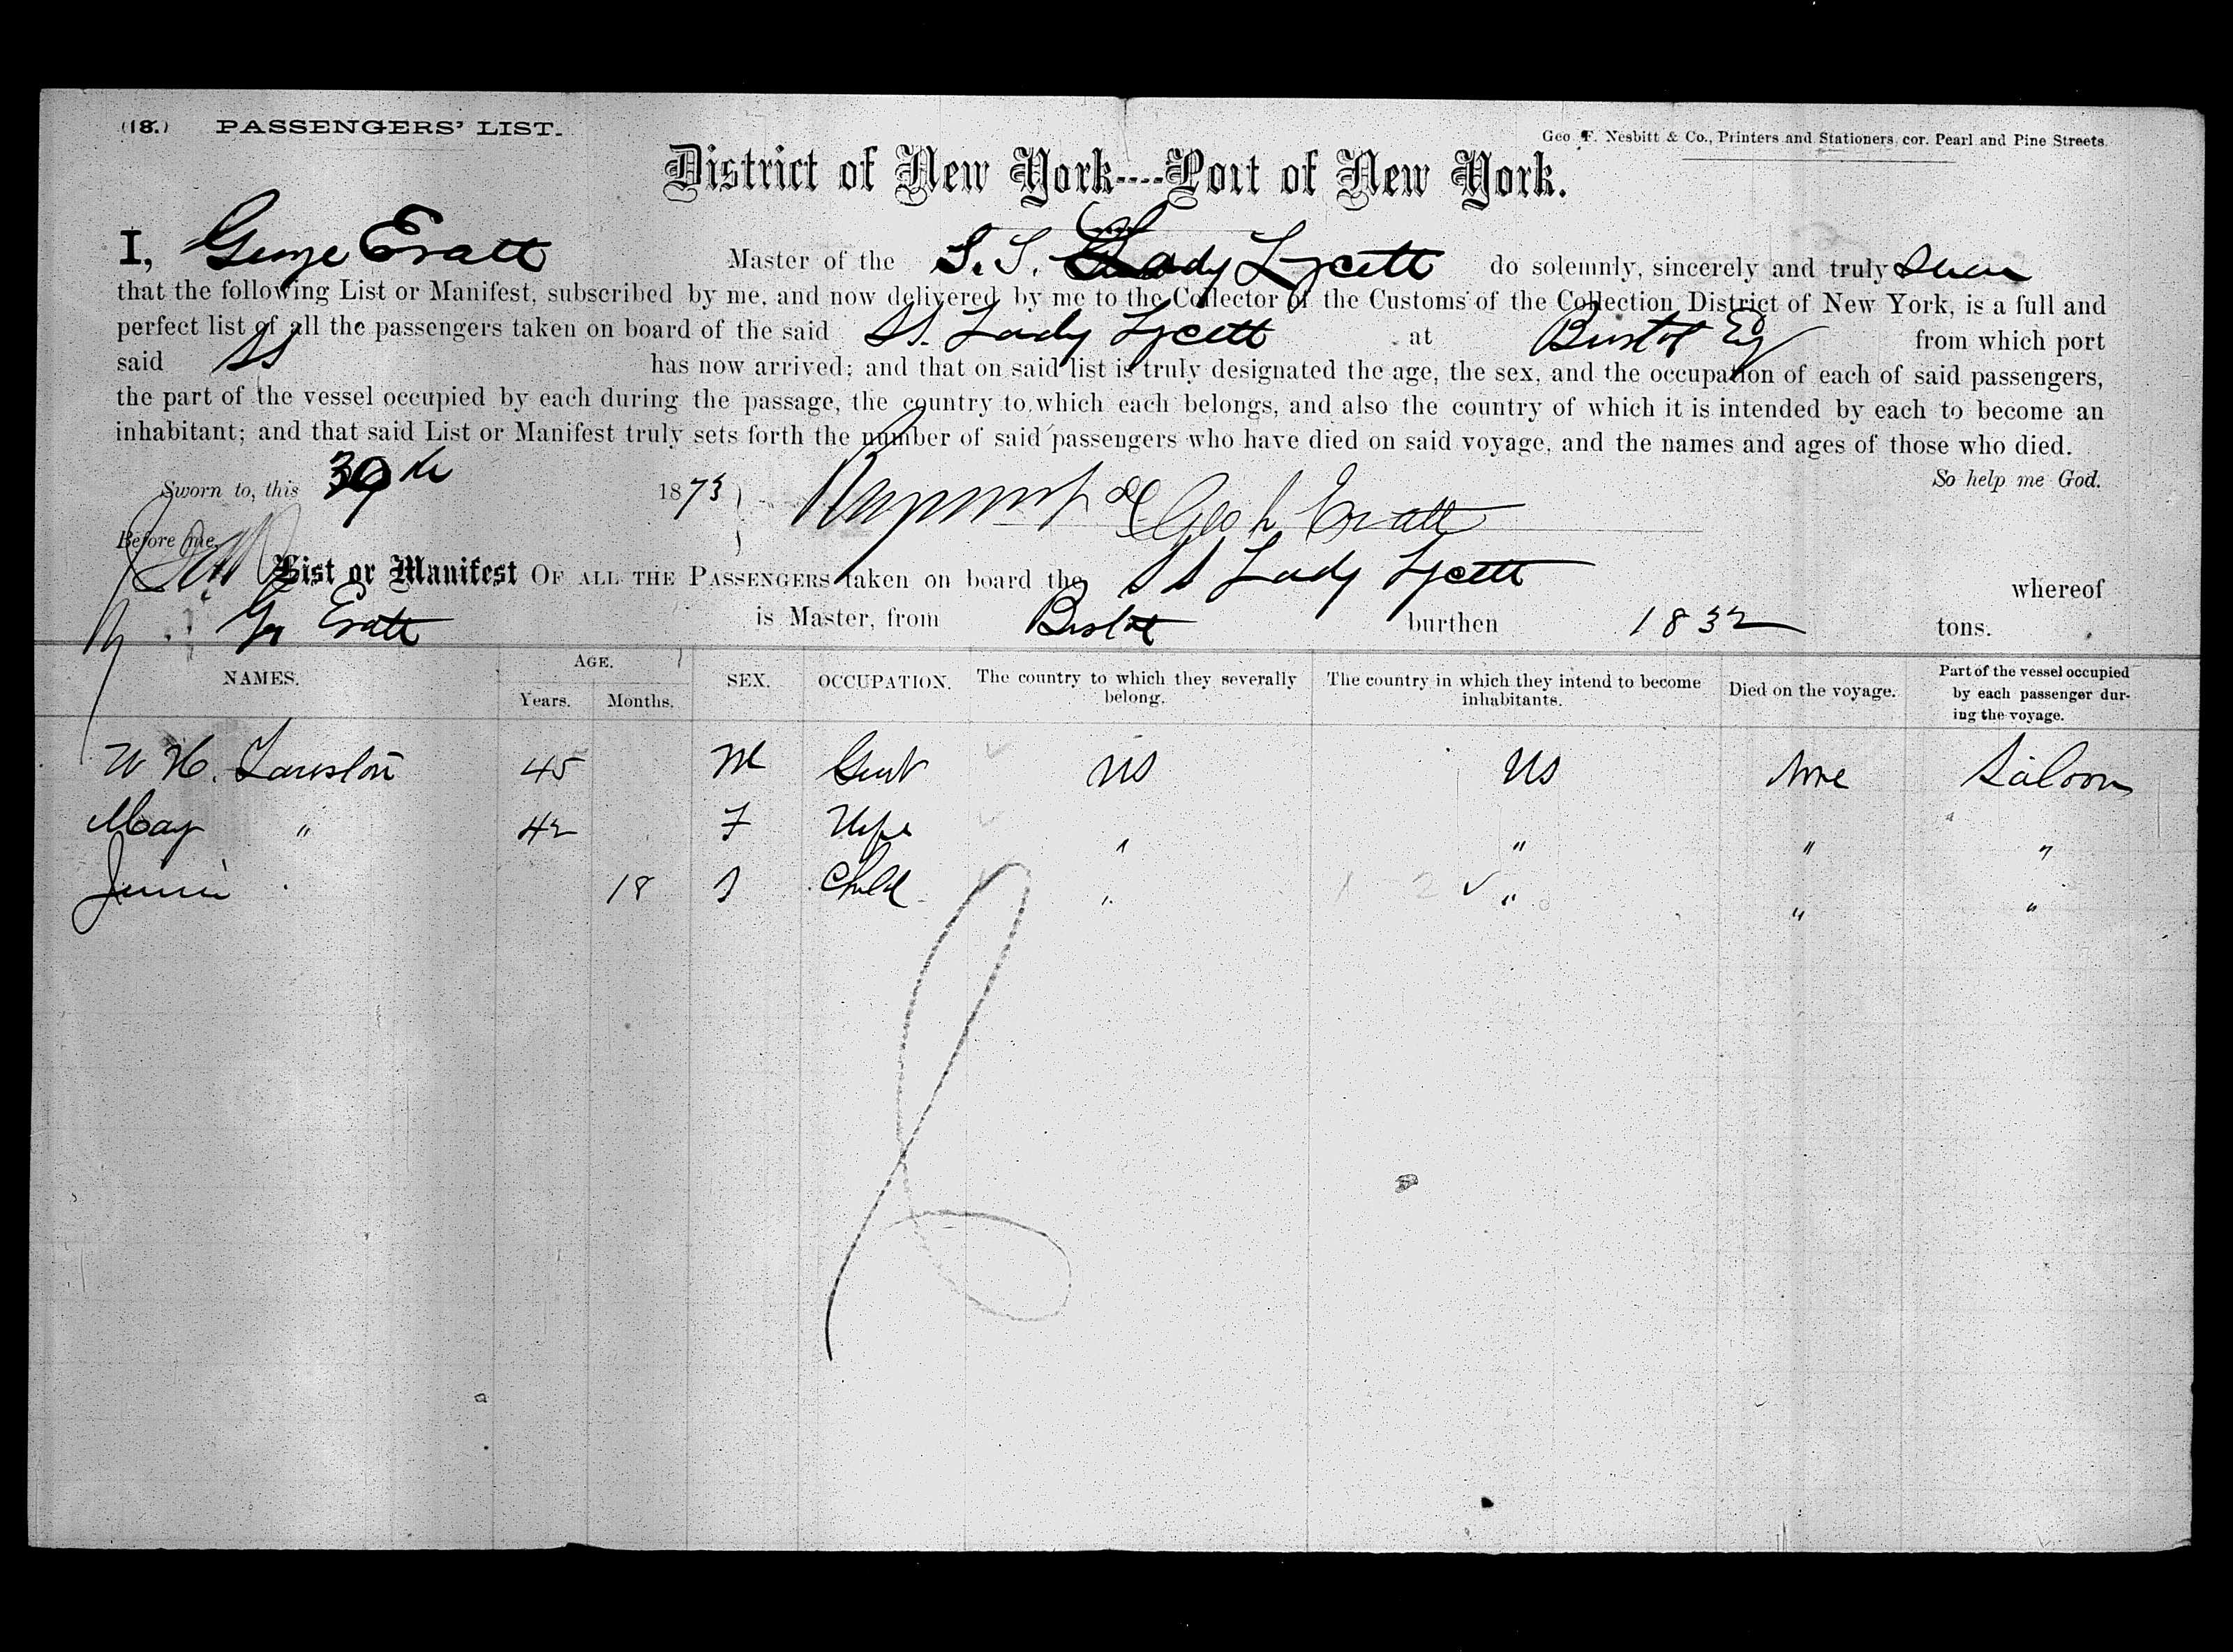 (18.) PASSENGERS' LIST.
Geo. F. Nesbitt & Co., Printers and Stationers, cor. Pearl and Pine Streets.
District of New York----Port of New York.
I, George Evatt Master of the S.S. Lady Lycett do solemnly, sincerely and truly swear
that the following List or Manifest, subscribed by me, and now delivered by me to the Collector of the Customs of the Collection District of New York, is a full and
perfect list of all the passengers taken on board of the said SS. Lady Lycett at Bristol Eg from which port
said SS has now arrived; and that on said list is truly designated the age, the sex, and the occupation of each of said passengers,
the part of the vessel occupied by each during the passage, the country to which each belongs, and also the country of which it is intended by each to become an
inhabitant; and that said List or Manifest truly sets forth the number of said passengers who have died on said voyage, and the names and ages of those who died.
Sworn to, this 1873 Geo h Evatt So help me God.
Before me,
List or Manifest OF ALL THE PASSENGERS taken on board the SS Lady Lycett whereof
Geo Evatt is Master, from Bristol burthen 1832 tons.
NAMES. AGE. Years. Months. SEX. OCCUPATION. The country to which they severally belong. The country in which they intend to become inhabitants. Died on the voyage. Part of the vessel occupied by each passenger during the voyage.
W H. 45 M Gent US US None Saloon
May " 42 F Wife " " " "
Jennie 18 Child " " " "